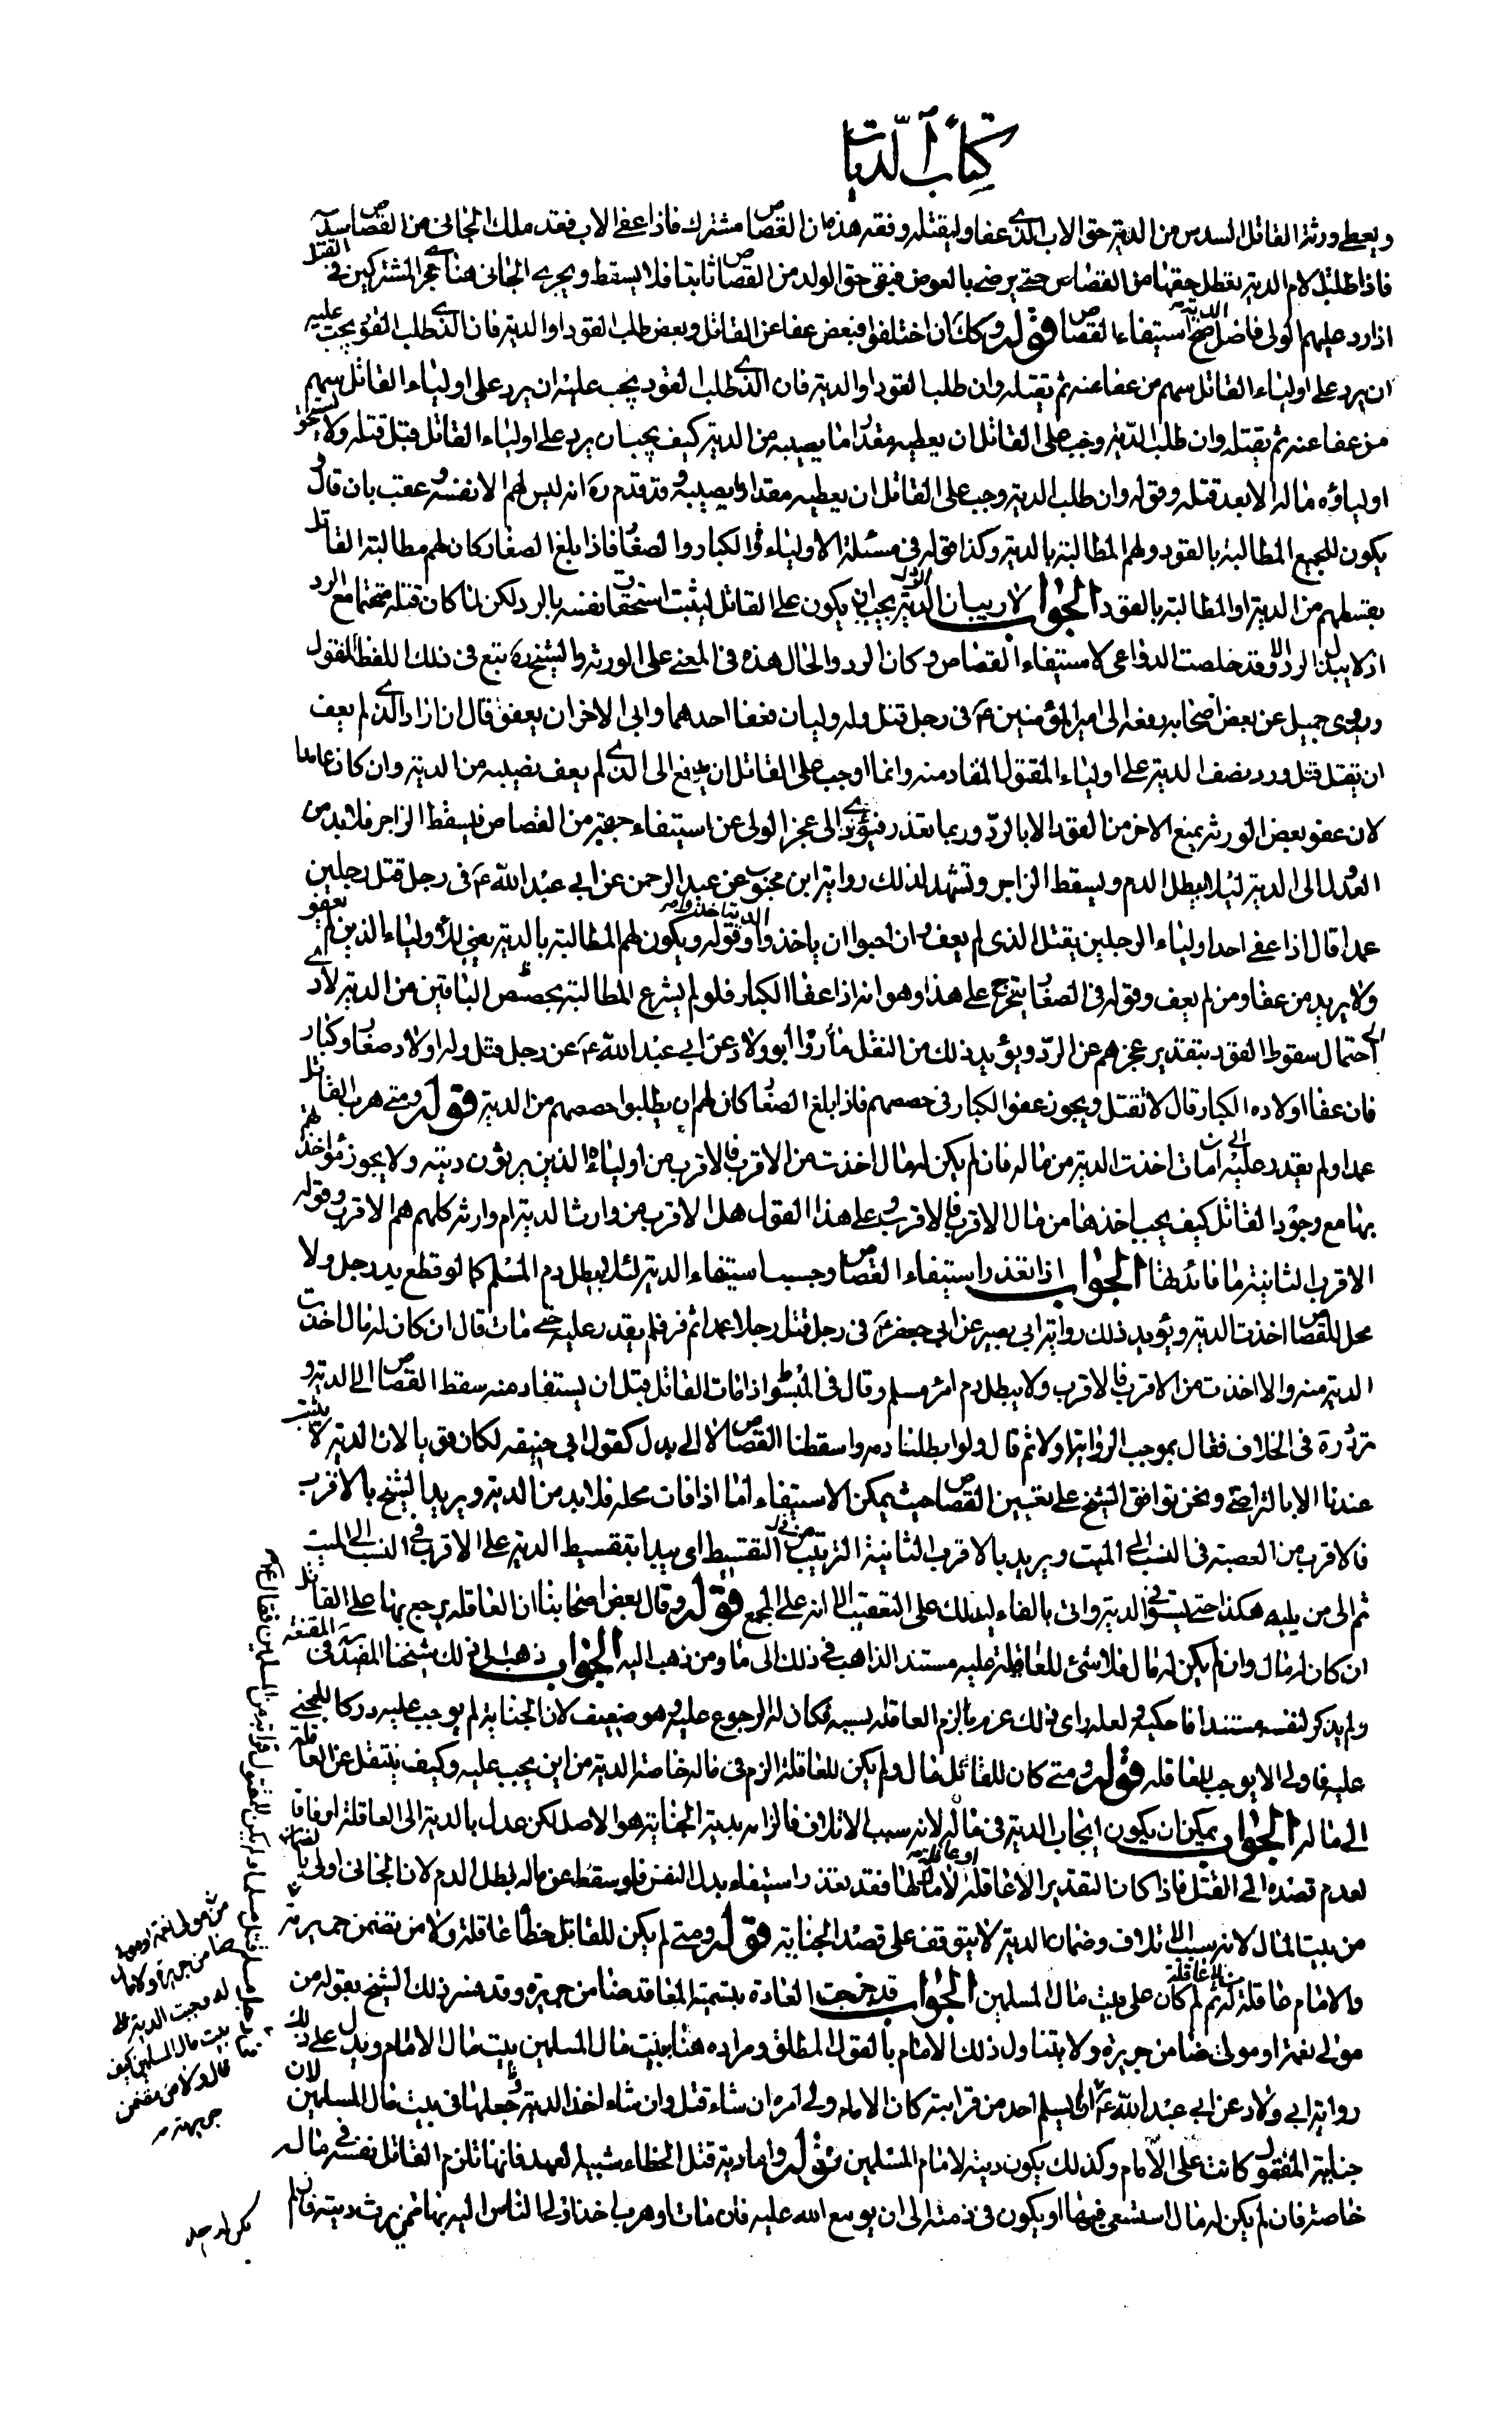 كتاب الديات
ويعطى ورثة القاتل السدس من الدية حق الاب الذى عفا وليقتله وفقه هذه ان القصاص مشترك فاذا عفى الاب فقد ملك الجانى من القصاص سدسه
فاذا طلبت الام الدية بقطل حقها من القصاص حتى يرضى بالعوض فبقى حق الولد من القصاص ثابتا فلا يسقط ويجرى الجانى هنا مجرى المشتركين فى القتل
اذا رد عليهم الولى فاضل الدية صح استيفاء القصاص قوله وكك ان اختلفوا فبعض عفا عن القاتل وبعض طلب القود او الدية فان الذى طلب القود يجب عليه
ان يرد على اولياء القاتل سهم من عفا عنه ثم يقتله وان طلب القود او الدية فان الذى طلب القود يجب عليه ان يرد على اولياء القاتل سهم
من عفا عنه ثم يقتله وان طلب الدية وجب على القاتل ان يعطيه مقدار ما يصيبه من الدية كيف يجب ان يرد على اولياء القاتل قبل قتله ولا يستحق
اولياؤه ماله الا بعد قتله وقوله وان طلب الدية وجب على القاتل ان يعطيه مقدار ما يصيبه وقد تقدم ره انه ليس لهم الا نفسه وعقب بان قال
يكون للجميع المطالبة بالقود ولهم المطالبة بالدية وكذا قوله فى مسئلة الاولياء فى الكبار والصغار فاذا بلغ الصغار كان لهم مطالبة القاتل
بقسطهم من الدية او المطالبة بالقود الجواب لا ريب ان الدية يجب ان يكون على القاتل ليثبت استحقاق نفسه بالرد لكن لما كان قتله متحتما مع الرد
اذ لا يبذل الرد الا وقد خلصت الدواعى لاستيفاء القصاص وكان الرد والحال هذه فى المعنى على الورثة والشيخ ره تبع فى ذلك اللفظ المنقول
وروى جميل عن بعض اصحابه رفعه الى امير المؤمنين ع فى رجل قتل وله وليان فعفا احدهما وابى الاخر ان يعفو قال ان اراد الذى لم يعف
ان يقتل قتل ورد نصف الدية على اولياء المقتول المقاد منه وانما اوجب على القاتل ان يدفع الى الذى لم يعف نصيبه من الدية وان كان عامدا
لان عفو بعض الورثة يمنع الاخر من القود الا بالرد وربما تعذر فيؤدى الى عجز الولى عن استيفاء حقه من القصاص فيسقط الزاجر فلابد من
العدول الى الدية لئلا يبطل الدم ويسقط الزاجر وتشهد لذلك رواية ابن محبوب عن عبد الرحمن عن ابى عبد الله ع فى رجل قتل رجلين
عمدا قال اذا عفى احد اولياء الرجلين يقتل الذى لم يعف وان احبوا ان ياخذوا الدية اخذوا وقوله ويكون لهم المطالبة بالدية يعنى الاولياء الذين لم يعفو
ولا يريد من عفا ومن لم يعف وقوله فى الصغار يتخرج على هذا وهو انه اذا عفا الكبار فلو لم يشرع المطالبة بحصص الباقين من الدية لادى
الى احتمال سقوط القود بتقدير عجزهم عن الرد ويؤيد ذلك من النقل ما رواه ابو ولاد عن ابى عبد الله ع عن رجل قتل وله اولاد صغار وكبار
فان عفا اولاده الكبار قال لا تقتل ويجوز عفو الكبار فى حصصهم فاذا بلغ الصغار كان لهم ان يطلبوا حصصهم من الدية قوله ومتى هرب القاتل
عمدا ولم يقدر عليه الى ان مات اخذت الدية من ماله فان لم يكن له مال اخذت من الاقرب فالاقرب من اوليائه الذين يرثون ديته ولا يجوز مؤاخذتهم
بها مع وجود القاتل كيف يجب اخذها من مال الاقرب فالاقرب وعلى هذا القول هل الاقرب من وارث الدية ام وارثه كلهم هم الاقرب وقوله
الاقرب الثانية ما فائدتها الجواب اذا تعذر استيفاء القصاص وجب استيفاء الدية لئلا يبطل دم المسلم كما لو قطع يد رجل ولا
محل للقصاص اخذت الدية ويؤيد ذلك رواية ابى بصير عن ابى جعفر ع فى رجل قتل رجلا عمدا ثم فر فلم يقدر عليه حتى مات قال ان كان له مال اخذت
الدية منه والا اخذت من الاقرب فالاقرب ولا يبطل دم امرء مسلم وقال فى المبسوط اذا مات القاتل قبل ان يستقاد منه سقط القصاص الى الدية و
تردد ره فى الخلاف فقال بموجب الرواية اولا ثم قال ولو ابطلنا دمه واسقطنا القصاص لا الى بدل كقول ابى حنيفه لكان قويا لان الدية لا يثبت
عندنا الا بالتراضى ونحن نوافق الشيخ على تعيين القصاص حيث يمكن الاستيفاء اما اذا فات محله فلابد من الدية ويريد الشيخ بالاقرب
فالاقرب من العصبة فى النسب الى الميت ويريد بالاقرب الثانية الترتيب فى التقسيط اى يبدا بتقسيط الدية على الاقرب فى النسب الى الميت
ثم الى من يليه هكذا حتى يستوفى الدية واتى بالفاء ليدلك على التعقيب لا انه على الجمع قوله وقال بعض اصحابنا ان العاقله يرجع بها على القاتل
ان كان له مال وان لم يكن له مال فلا شئ للعاقلة عليه مستند الذاهب فى ذلك الى ما ومن ذهب اليه الجواب ذهب الى ذلك شيخنا المفيد فى المقنعه
ولم يذكر لنفسه مستندا فاحكيه ولعله راى ذلك غرما لزم العاقله بسببه فكان له الرجوع عليه وهو ضعيف لان الجناية لم يوجب عليه دركا للمجنى
عليه فاولى الا يوجب للعاقله قوله ومتى كان للقاتل مال ولم يكن للعاقلة الزم فى ماله خاصة الدية من اين يجب عليه وكيف ينتقل عن العاقلة
الى ماله الجواب يمكن ان يكون ايجاب الدية فى ماله لانه سبب الاتلاف فالزامه بدية الجناية هو الاصل لكن عدل بالدية الى العاقلة ارفاقا
لعدم قصده الى القتل فاذا كان التقدير الا عاقلة او عاقلة لا مال لها فقد تعذر استيفاء بدل النفس فلو سقط عن ماله بطل الدم لان الجانى اولى بالضمان
من بيت المال لانه سبب الاتلاف وضمان الدية لا يتوقف على قصد الجناية قوله ومتى لم يكن للقاتل خطأ عاقلة ولا من تضمن جريرته
والامام عاقلة له ثم لم كان على بيت مال المسلمين الجواب قد جرت العادة بتسمية المعاقد ضامن جريره وقد فسر ذلك الشيخ بقوله من
مولى نعمة او مولى ضامن جريرة ولا يتناول ذلك الامام بالقول المطلق ومراده هنا ببيت مال المسلمين بيت مال الامام ويدل على ذلك
رواية ابى ولاد عن ابى عبد الله ع ان لم يسلم احد من قرابته كان الامام ولى امره ان شاء قتل وان شاء اخذ الدية وجعلها فى بيت مال المسلمين لان
جناية المقتول كانت على الامام وكذلك يكون ديته لامام المسلمين قوله واما دية قتل الخطاء شبيه العمد فانها تلزم القاتل نفسه فى ماله
خاصة فان لم يكن له مال استسعى فيها او يكون فى ذمته الى ان يوسع الله عليه فان مات او هرب اخذ اولى الناس اليه بها ممن يرث ديته فان لم
يكن له احد
من مولى نعمة او مولى
ضامن جريرة ولا مال
له وجبت الدية على
بيت مال المسلمين كيف
قال ولا من يضمن
جريرته